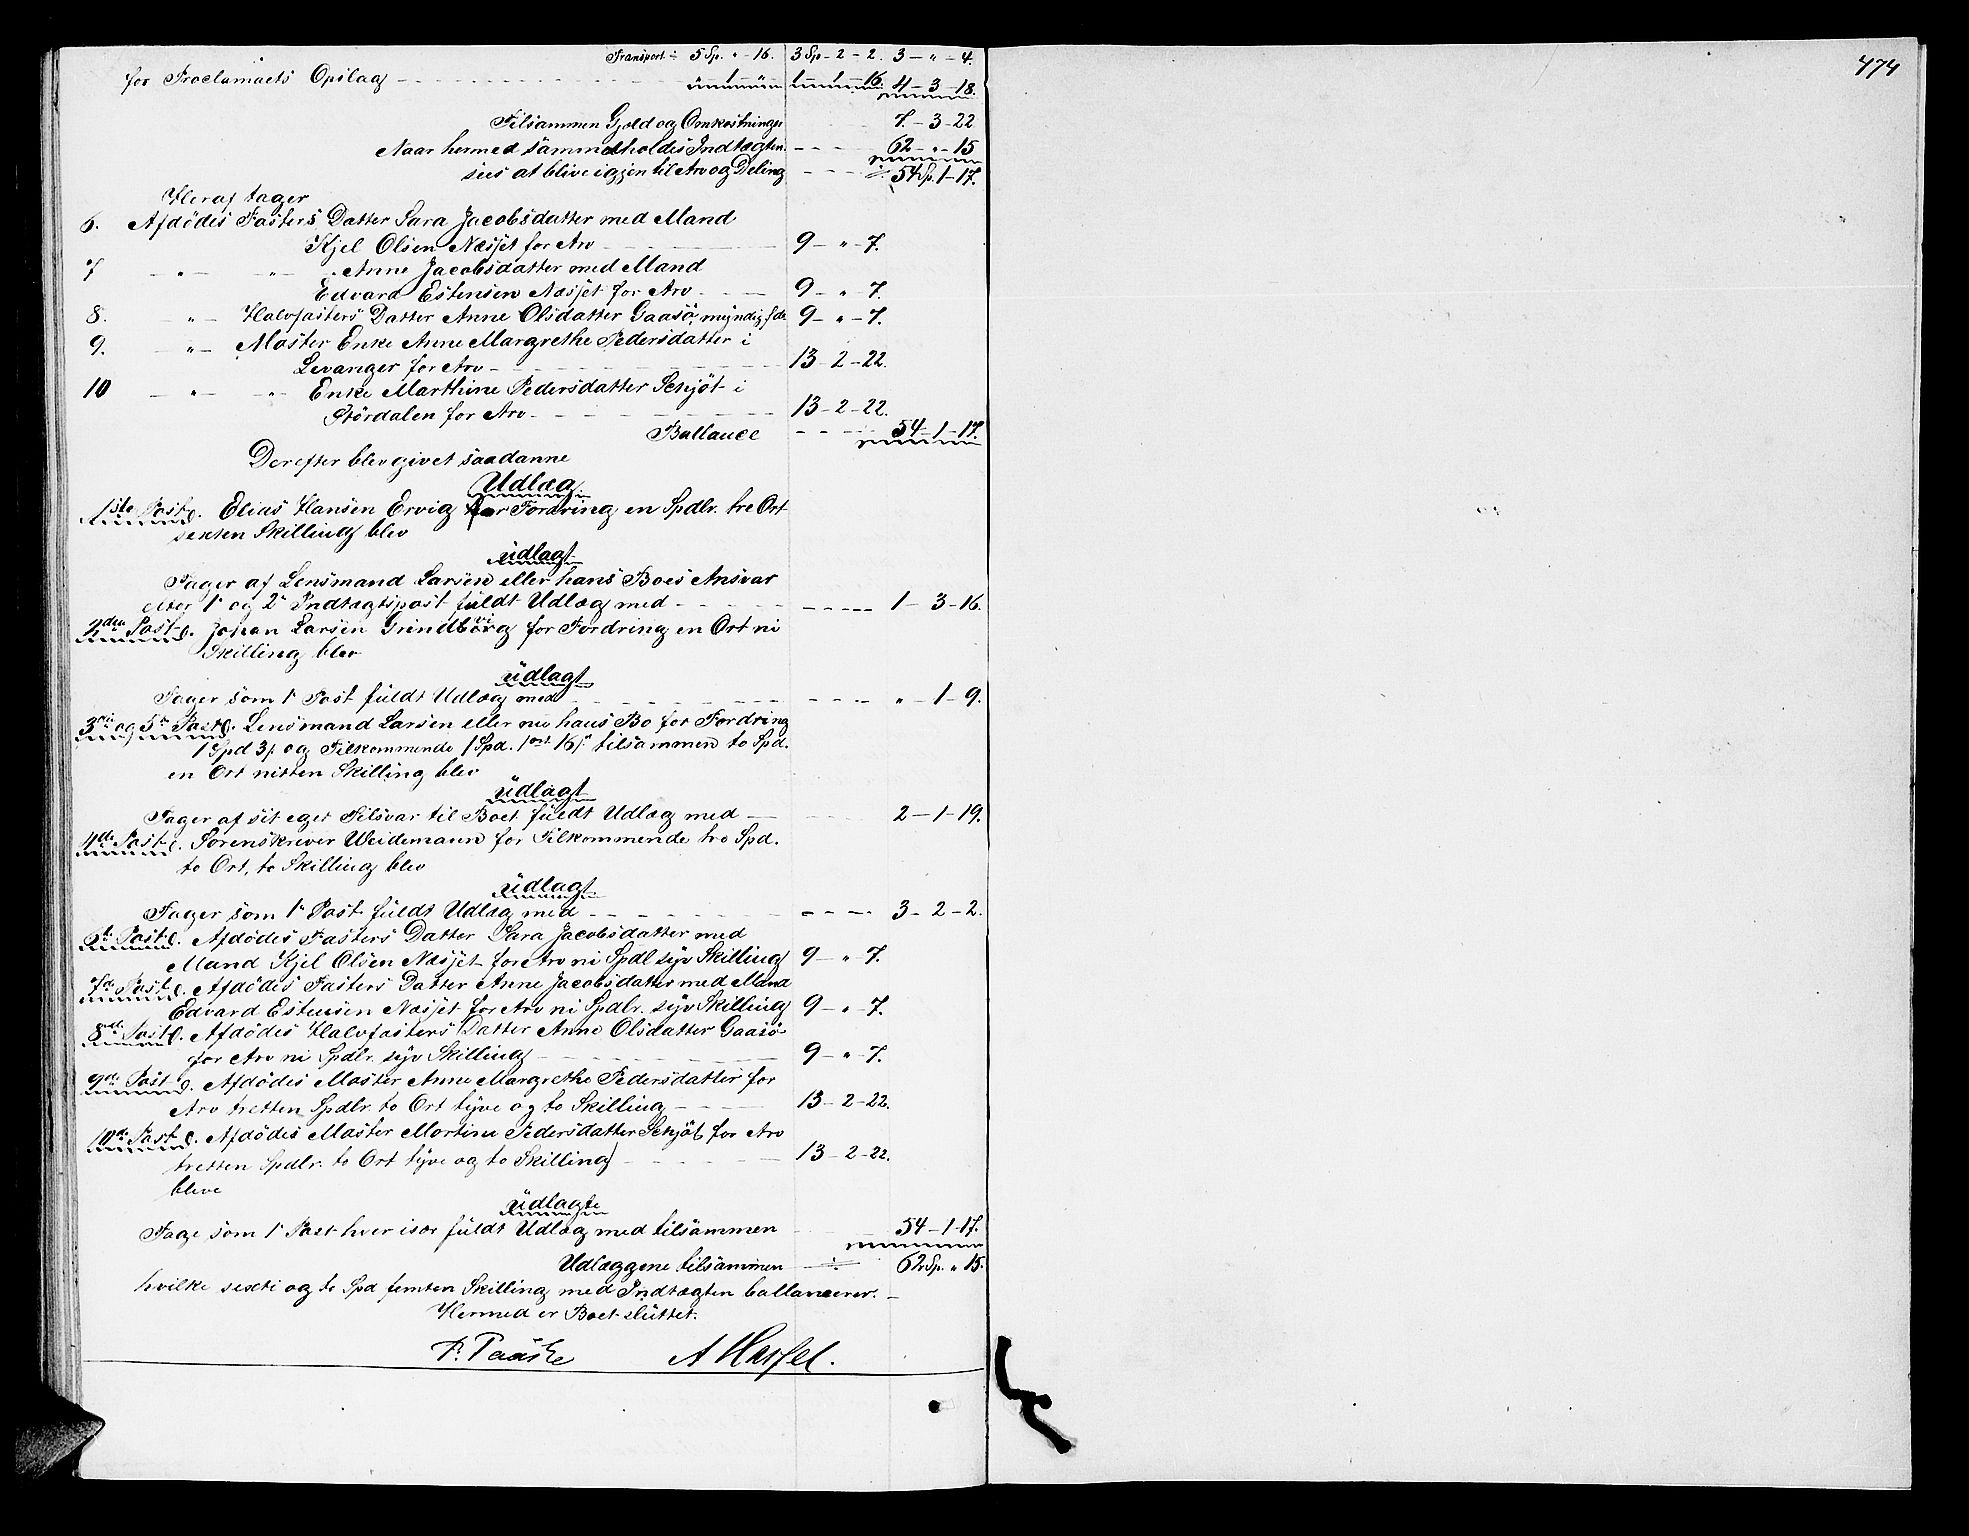 Transport ÷ 5 Sp. " - 16. 3 Sp - 2 - 2. 3 - " - 4.
for Proclamaets Opslag - - - " 1 - " 1 - 1 - 16. 4 - 3 - 18.
Tilsammen Gjeld og Omkostninger 7. - 3 - 22
Naar hermed sammenholdes Indtægten - - - 62 - " - 15
sees at blive igjen til Arv og Deling - - - ÷ 54 Sp. 1 - 17.
Heraf tager
6. Afdødes Fasters Datter Sara Jacobsdatter med Mand
Kjel Olsen Næsjet for Arv - - - 9 - " - 7.
7 - " - - " - Anne Jacobsdatter med Mand
Edvard Estensen Næsjet for Arv - - - 9 - " - 7.
8. - " - Halvfasters Datter Anne Olsdatter Gaasö, myndig, for do 9 - " - 7.
9. - " - Moster Enke Anne Margrethe Pedersdatter i
Levanger for Arv - - - 13 - 2 - 22.
10 - " - - " - Enke Marthine Pedersdatter Schjöt i
Stördalen for Arv - - - 13 - 2 - 22.
Ballance - - - 54 - 1 - 17.
Derefter blev givet saadanne
Udlæg.
1ste Post. Elias Hansen Ervig for Fordring en Spdlr. tre Ort
sexten Skilling blev
udlagt
Tager af Lensmand Larsen eller hans Boes Ansvar
efter 1e og 2n Indtægtspost fuldt Udlæg med - - - 1 - 3 - 16.
2den Post. Johan Larsen Grindborg for Fordring en Ort ni
Skilling blev
udlagt
Tager som 1e Post fuldt Udlæg med - - - " - 1 - 9.
3die og 5te Post. Lensmand Larsen eller nu hans Bo for Fordring
1 Spd 3/. og Tilkommende 1 Spd. 1 ort 16 s. tilsammen to Spd.
en Ort nitten Skilling blev
udlagt
Tager af sit eget Tilsvar til Boet fuldt Udlæg med - - - 2 - 1 - 19.
4de Post. Sorenskriver Weidemann for Tilkommende tre Spd.
to Ort, to Skilling blev
udlagt
Tager som 1e Post fuldt Udlæg med - - - 3 - 2 - 2.
6te Post. Afdødes Fasters Datter Sara Jacobsdatter med
Mand Kjel Olsen Næsjet for Arv ni Spdl syv Skilling 9 - " - 7.
7de Post. Afdødes Fasters Datter Anne Jacobsdatter med Mand
Edvard Estensen Næsjet for Arv ni Spdlr. syv Skilling 9 - " - 7.
8nde Post. Afdødes Halvfasters Datter Anne Olsdatter Gaasö
for Arv ni Spdlr. syv Skilling - - - 9 - " - 7.
9de Post. Afdødes Moster Anne Margrethe Pedersdatter for
Arv tretten Spdlr. to Ort tyve og to Skilling - - - 13 - 2 - 22.
10de Post. Afdødes Moster Martine Pedersdatter Schjöt for Arv
tretten Spdlr. to Ort tyve og to Skilling - - - 13 - 2 - 22.
bleve
udlagte
Tage som 1e Post hver især fuldt Udlæg med tilsammen 54 - 1 - 17.
Udlæggene tilsammen ÷ 62 Sp. " 15.
hvilke sexti og to Spd femten Skilling med Indtægten ballancerer. -
Hermed er Boet sluttet.
P. Paaske A Hassel.
474